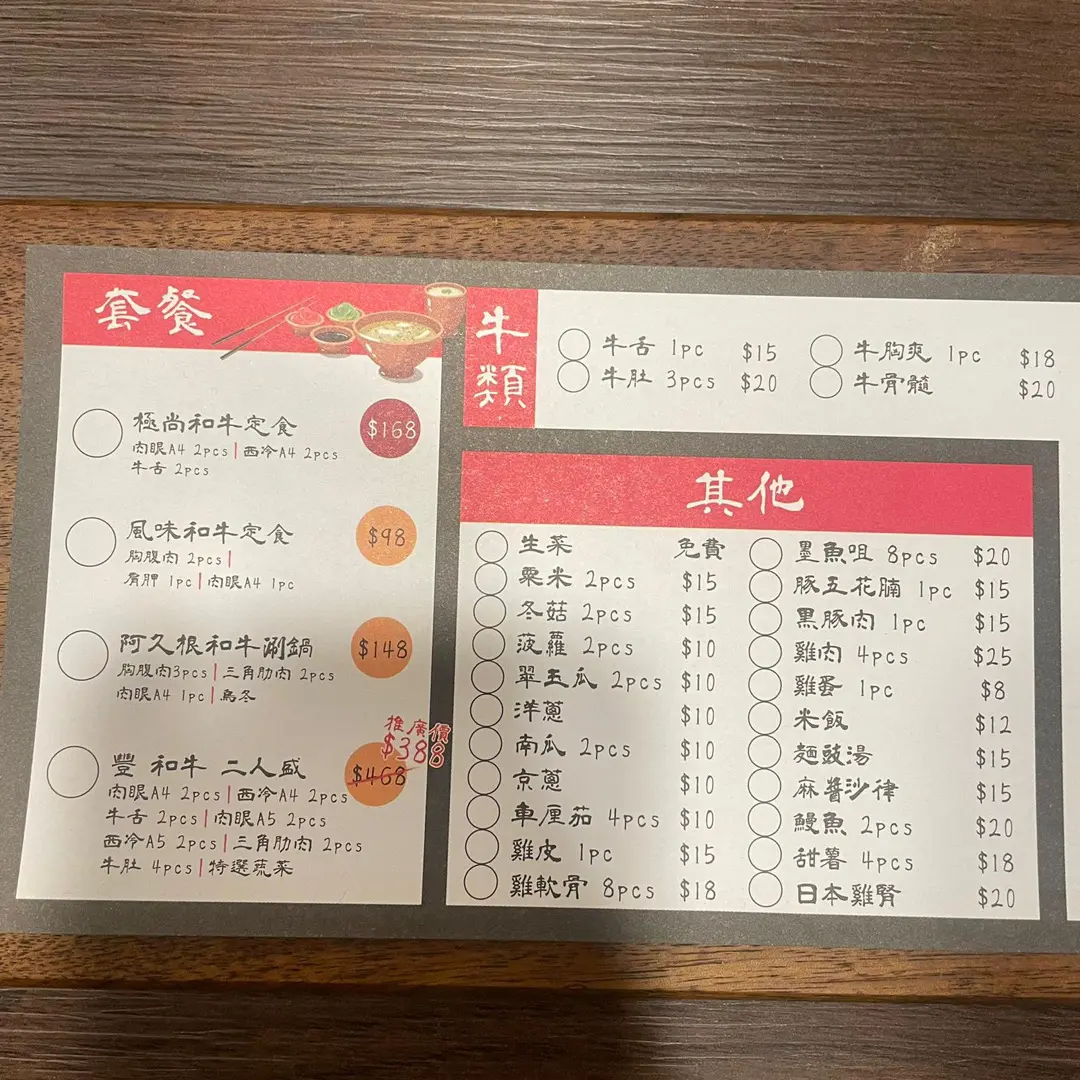 套餐
極尚和牛定食 $168
肉眼A4 2pcs | 西冷A4 2pcs
牛舌 2pcs
風味和牛定食 $98
胸腹肉 2pcs |
肩胛 1pc | 肉眼A4 1pc
阿久根和牛涮鍋 $148
胸腹肉3pcs | 三角肋肉 2pcs
肉眼A4 1pc | 烏冬
推廣價
$388
豐 和牛 二人盛 $468
肉眼A4 2pcs | 西冷A4 2pcs
牛舌 2pcs | 肉眼A5 2pcs
西冷A5 2pcs | 三角肋肉 2pcs
牛肚 4pcs | 特選蔬菜
牛類
牛舌 1pc $15
牛肚 3pcs $20
牛胸爽 1pc $18
牛骨髓 $20
其他
生菜 免費
粟米 2pcs $15
冬菇 2pcs $15
菠蘿 2pcs $10
翠玉瓜 2pcs $10
洋蔥 $10
南瓜 2pcs $10
京蔥 $10
車厘茄 4pcs $10
雞皮 1pc $15
雞軟骨 8pcs $18
墨魚咀 8pcs $20
豚五花腩 1pc $15
黑豚肉 1pc $15
雞肉 4pcs $25
雞蛋 1pc $8
米飯 $12
麵豉湯 $15
麻醬沙律 $15
鰻魚 2pcs $20
甜薯 4pcs $18
日本雞腎 $20